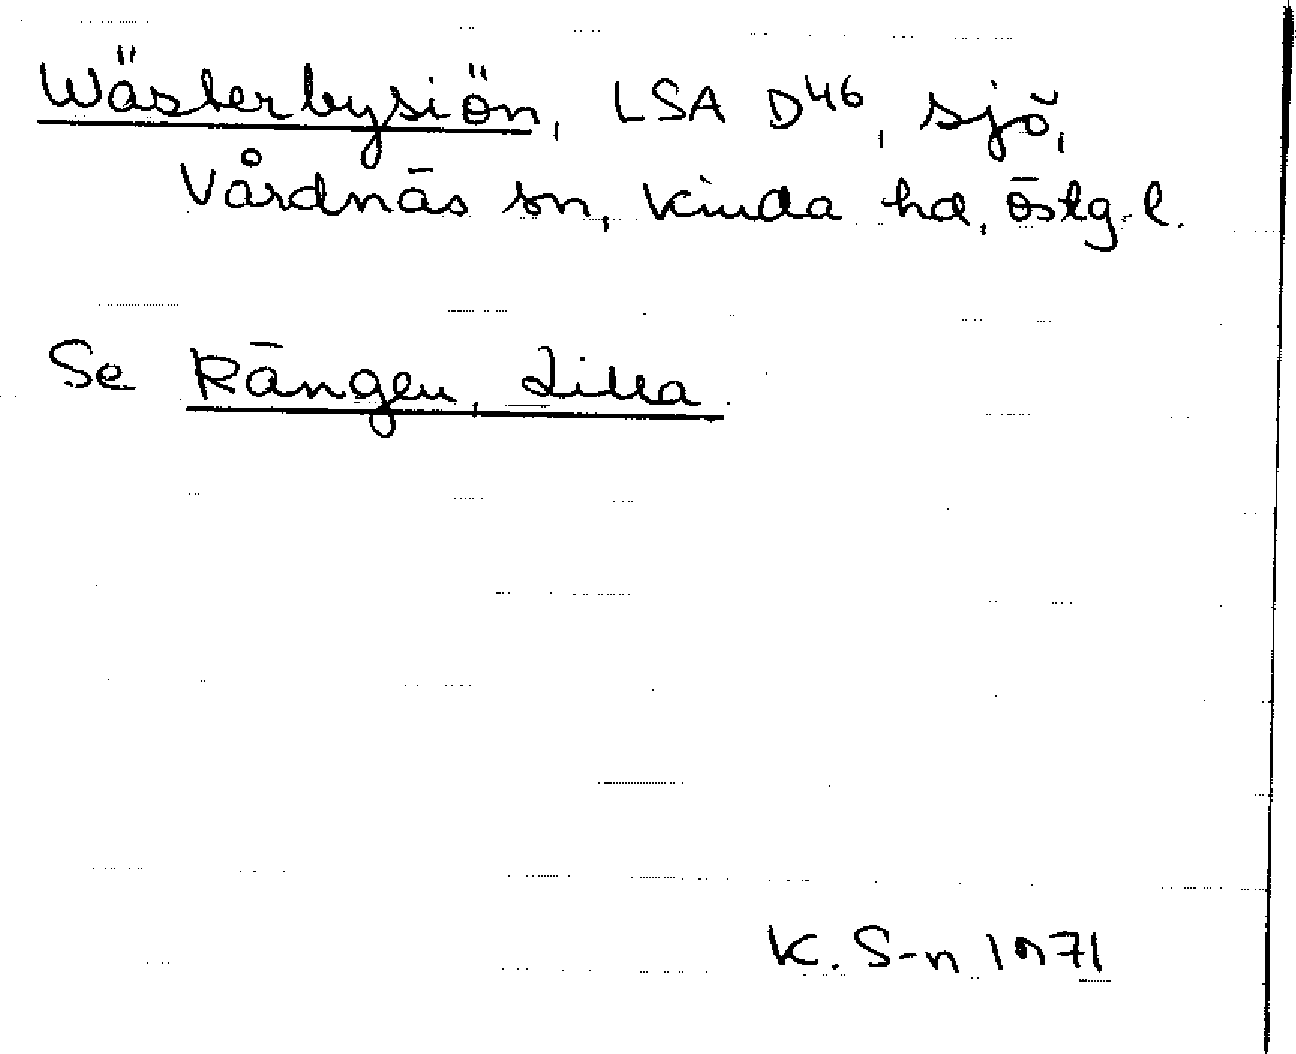 Wästerbysiön, LSA D46, sjö,
Vårdnäs sn, Kinda hd, Östg. l.
Se Rängen, Lilla.
K. S-n 1971